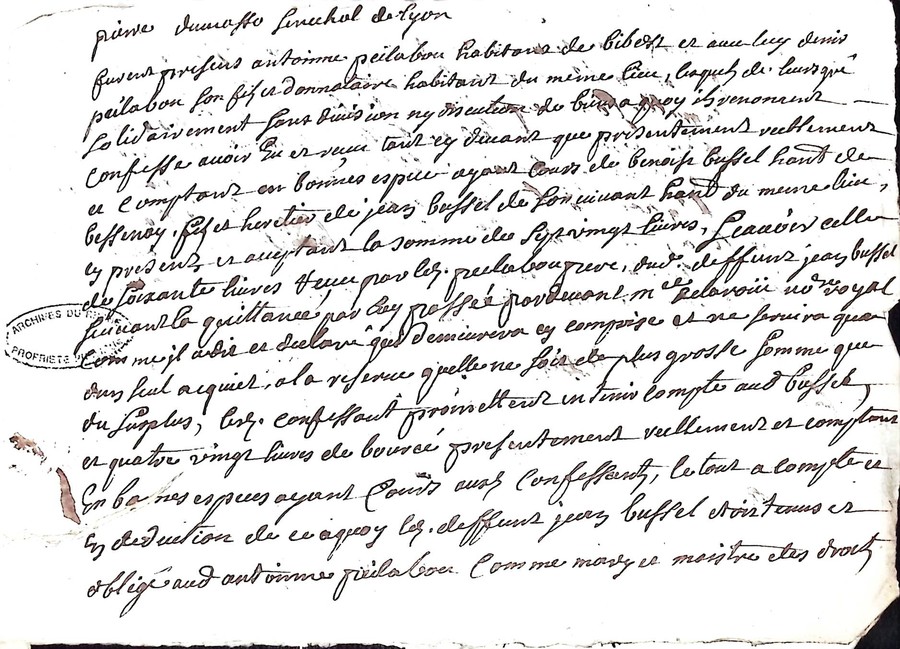 pierre dumasso senechal de Lyon
furent presens antoinne peilabou habitant de bibost et avec luy denis
peilabou son fiz et donnataire habitant du meme lieu, lequels de leurs gré
solidairement sans division ny discution de biens a quoy ils renoncent
confesse avoir eu et reçu tant cy devant que presentement reellement
et comptant en bonnes espece ayant cours de benoist bussel habt de
bessenay, fiz et heretier de jean bussel de son vivant habt du meme lieu,
cy present et aceptant la somme de sept vingt livres, scavoir celle
de soixante livres reçu par led. peilabou pere, dud. deffunt jean bussel
suivant la quittance par luy passée pardevant me delaroüe nore royal
comme il a dit et declaré qui demeurera cy comprise et ne servira que
dun seul acquiet, a la reserve quelle ne soit de plus grosse somme que
du surplus, lesd. confessant promettent en tenir compte aud bussel
et quatre vingt livres de boursé presentement reellement et comptant
en bonnes especes ayant cours auxd confessants, le tout a compte et
en deduction de ce a quoy led. deffunt jean bussel etoit tenus et
obligé aud antoinne peilabou comme mary et maistre des droits
ARCHIVES DU
PROPRIETE